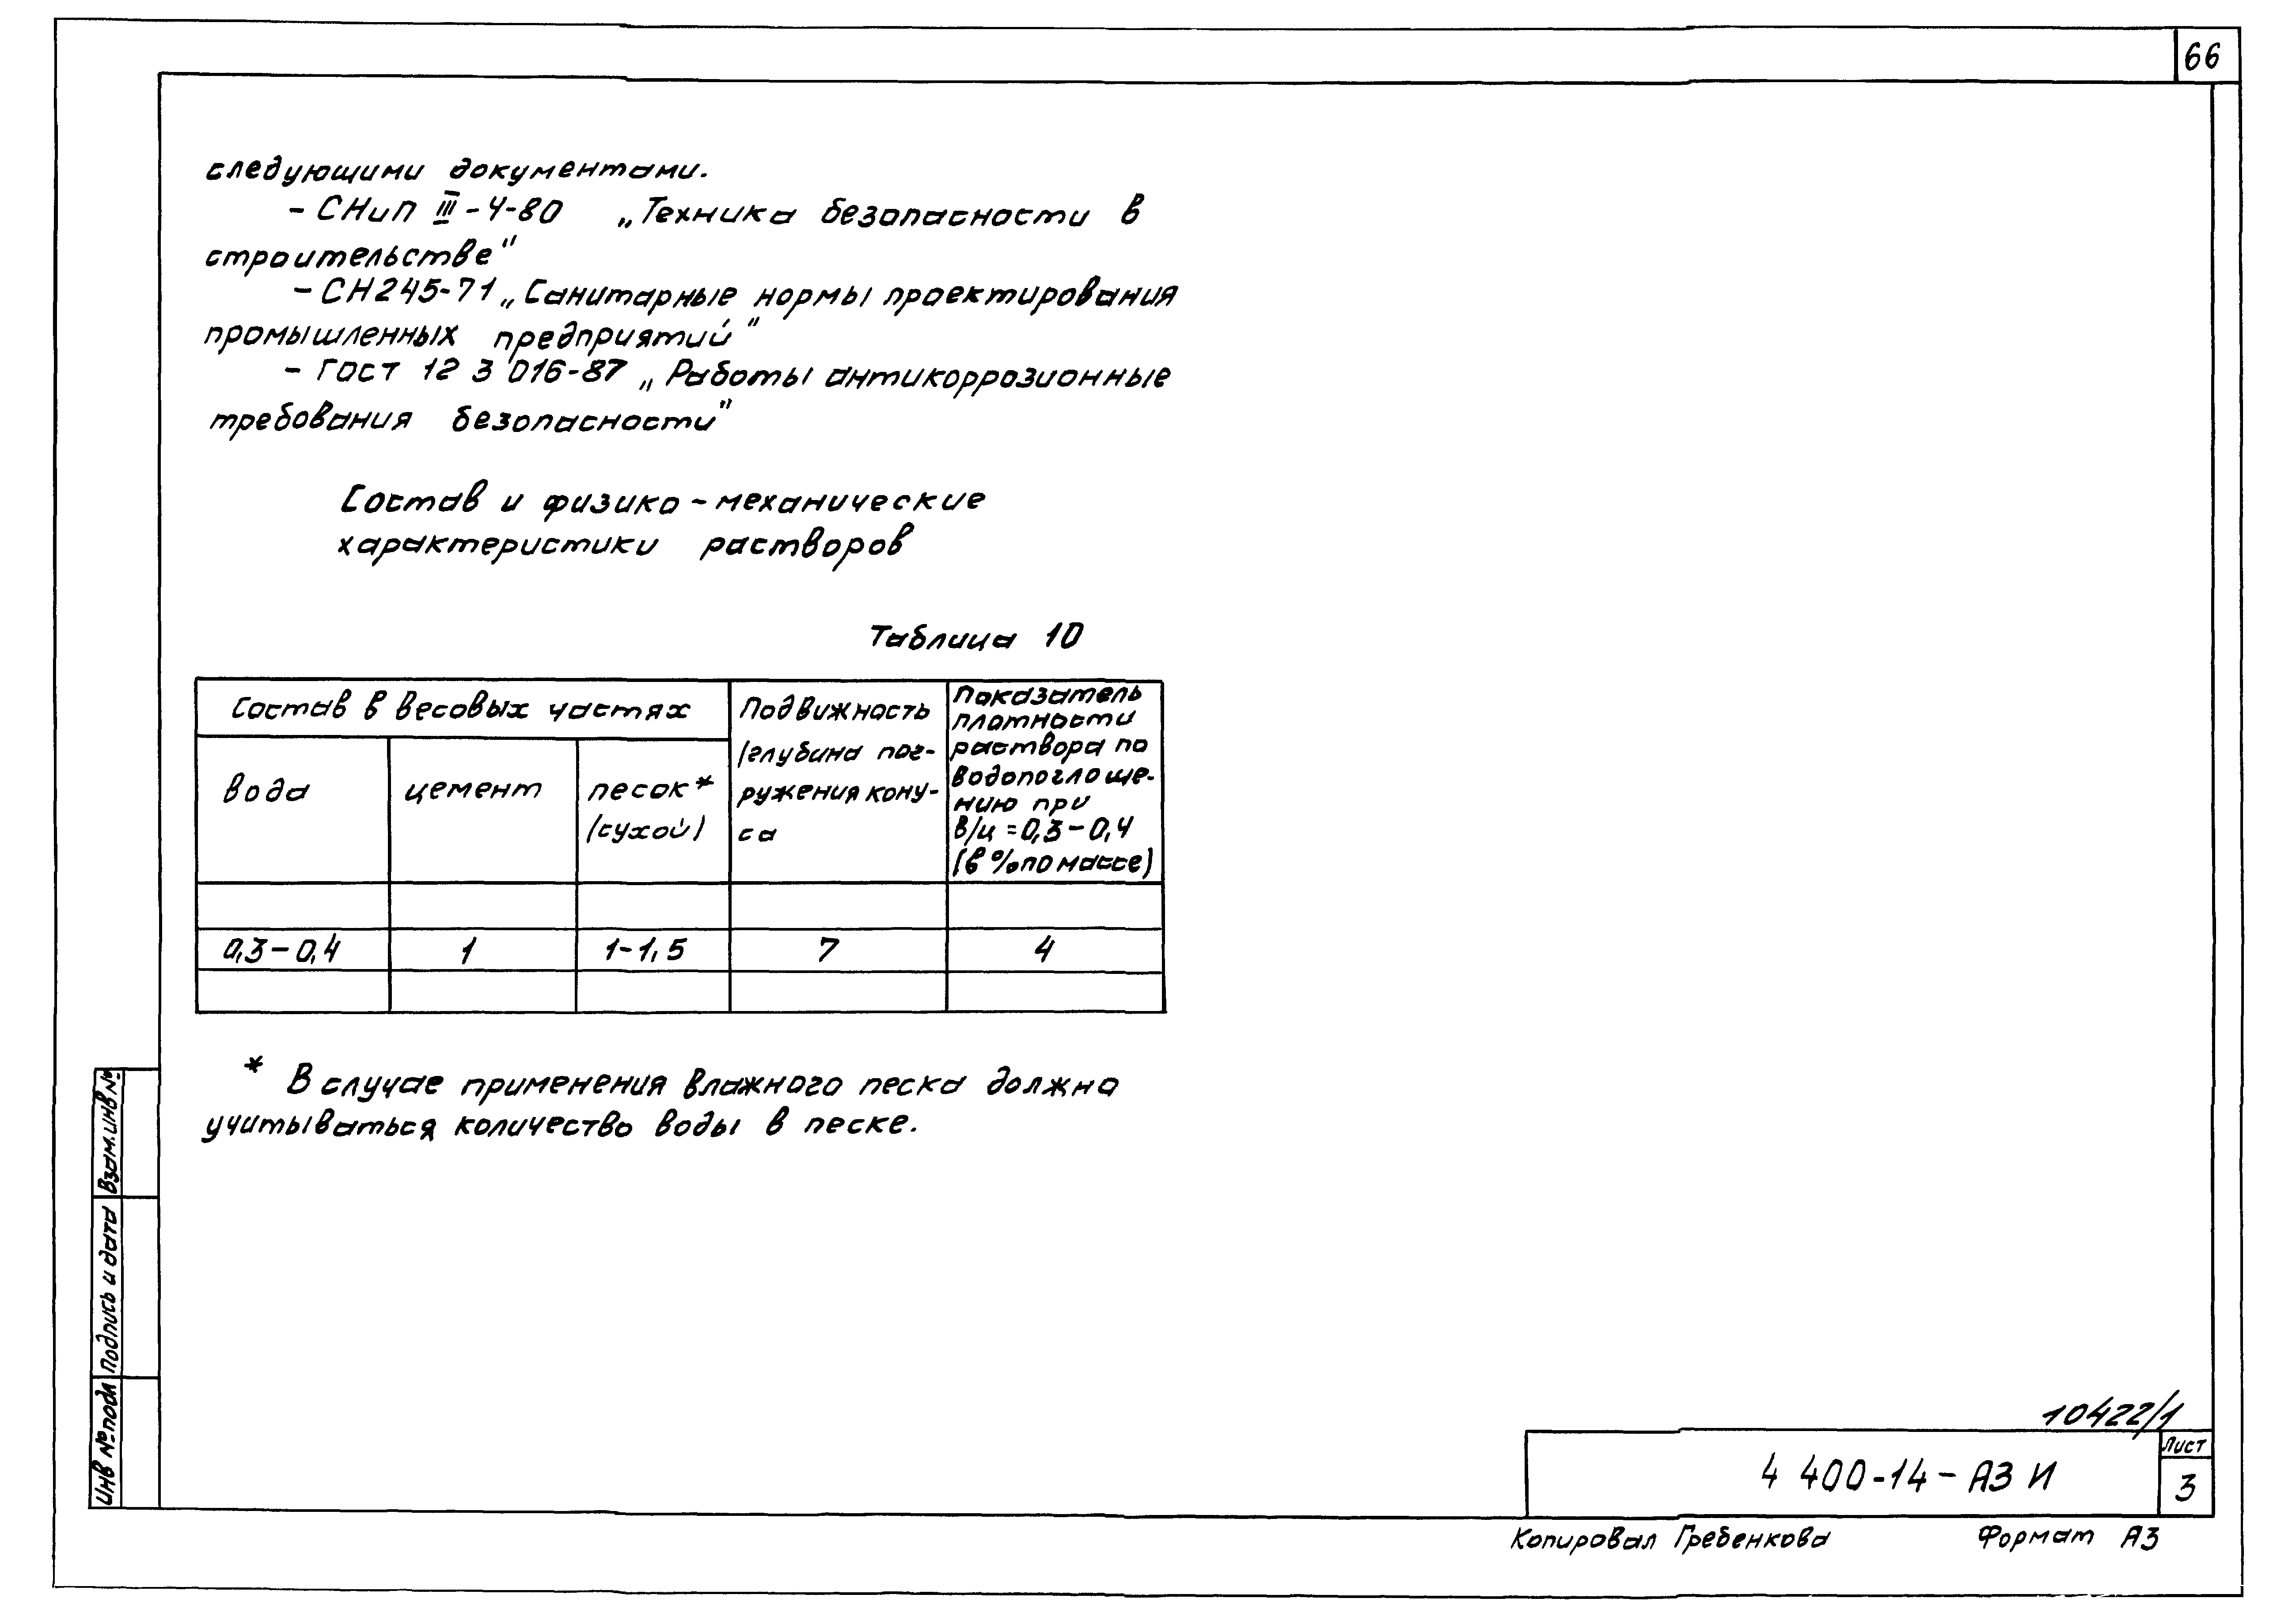 66
следующими документами.
– СНиП III-4-80 „Техника безопасности в
строительстве"
– СН245-71 „Санитарные нормы проектирования
промышленных предприятий"
– ГОСТ 12 3 016-87 „Работы антикоррозионные
требования безопасности"
Состав и физико-механические
характеристики растворов
Таблица 10
Состав в весовых частях
вода
цемент
песок*
(сухой)
Подвижность
(глубина пог-
ружения кону-
са
Показатель
плотности
раствора по
водопоглоще-
нию при
В/ц = 0,3–0,4
(в % по массе)
0,3–0,4 1 1-1,5 7 4
* В случае применения влажного песка должно
учитываться количество воды в песке.
Взам.инв№
Подпись и дата
Инв №подл
10422/1
4 400-14-А3 И
Лист
3
Копировал Гребенкова Формат А3